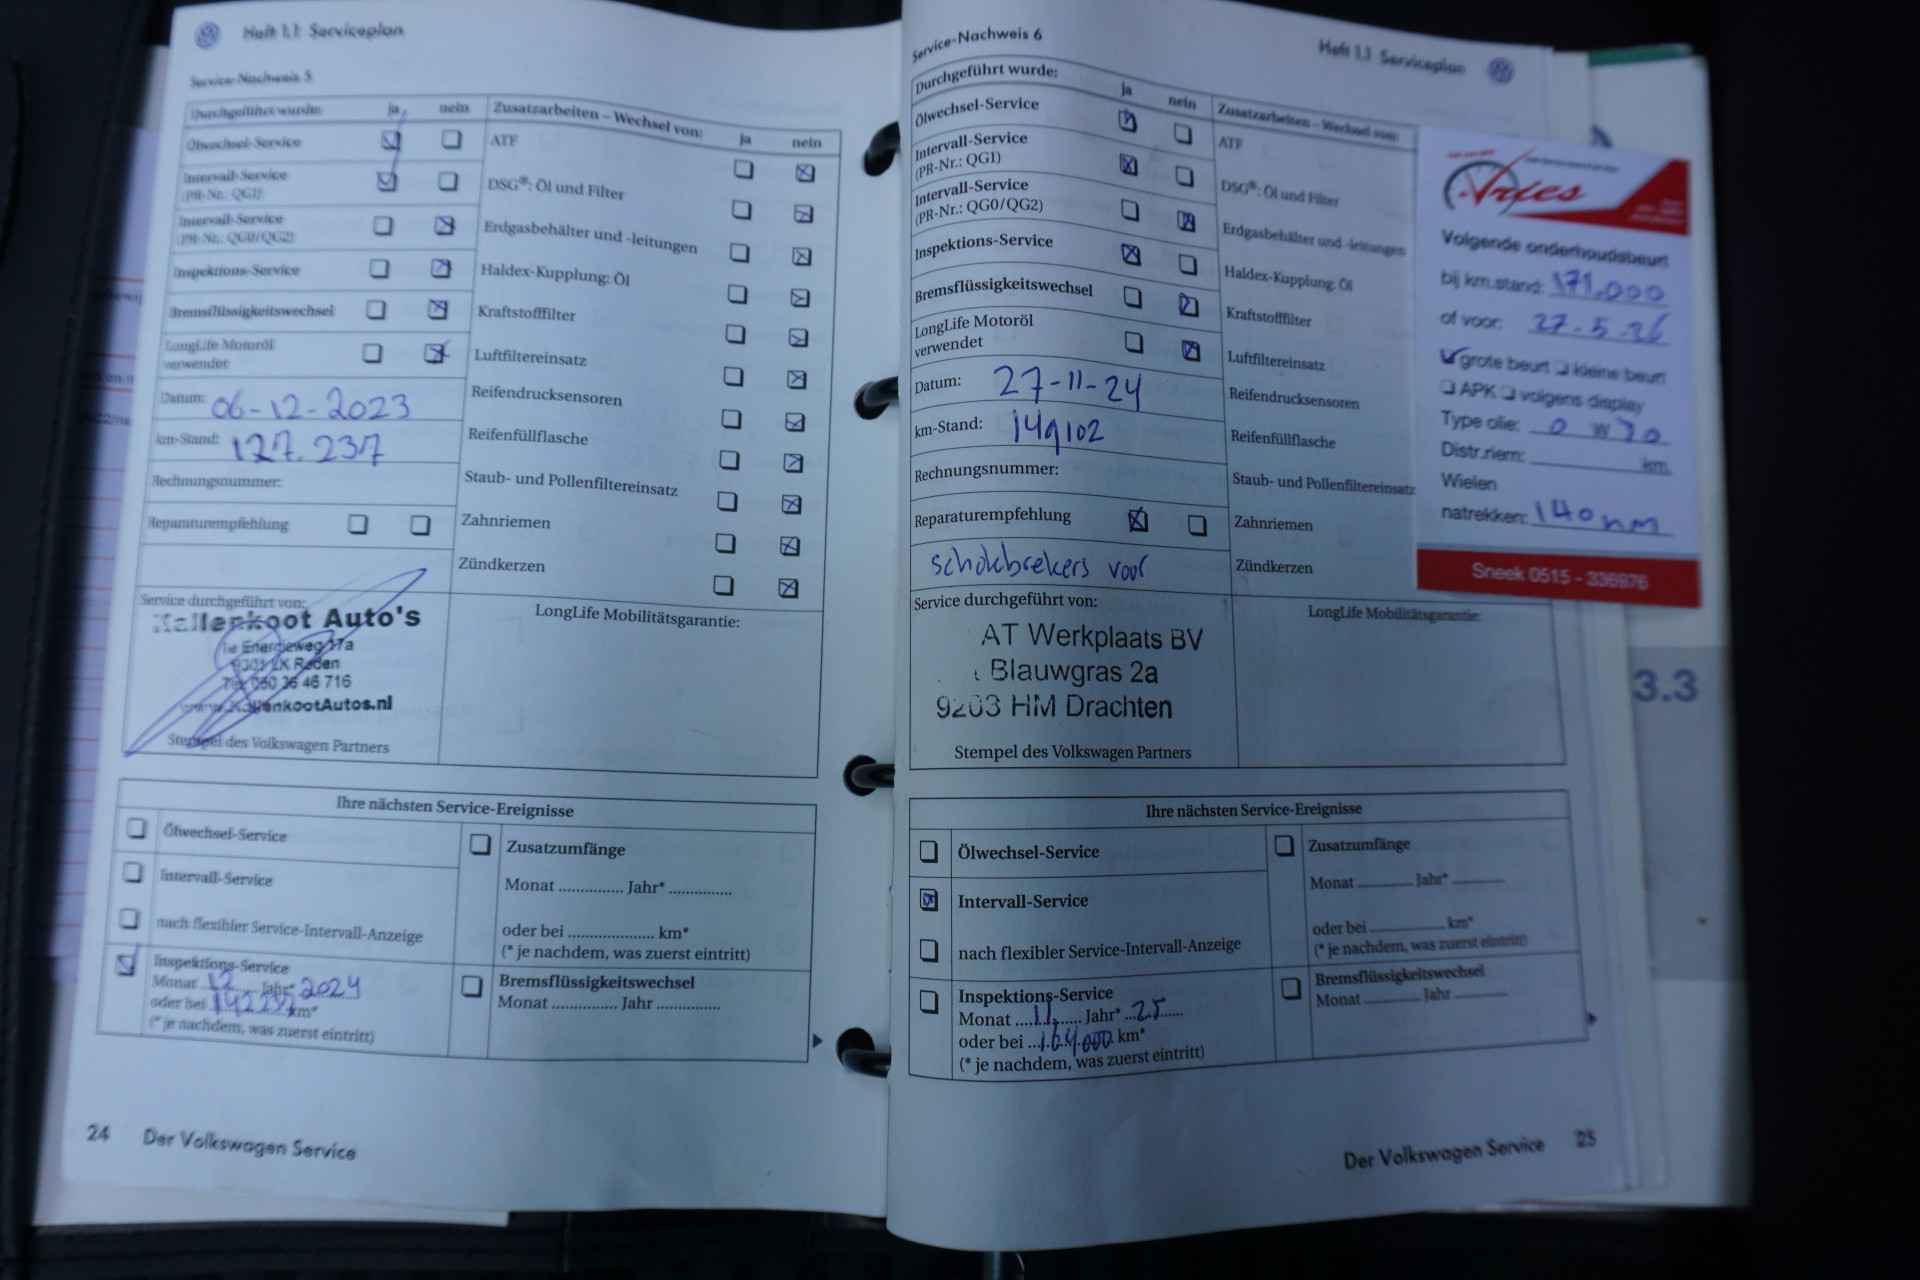 Heft 1.1 Serviceplan
Service-Nachweis 5
Durchgeführt wurde: ja nein
Ölwechsel-Service
Intervall-Service
(PR-Nr.: QG1)
Intervall-Service
(PR-Nr.: QG0/QG2)
Inspektions-Service
Bremsflüssigkeitswechsel
LongLife Motoröl
verwendet
Datum: 06-12-2023
km-Stand: 127.237
Rechnungsnummer:
Reparaturempfehlung
Zusatzarbeiten – Wechsel von: ja nein
ATF
DSG®: Öl und Filter
Erdgasbehälter und -leitungen
Haldex-Kupplung: Öl
Kraftstofffilter
Luftfiltereinsatz
Reifendrucksensoren
Reifenfüllflasche
Staub- und Pollenfiltereinsatz
Zahnriemen
Zündkerzen
Service durchgeführt von:
Kallenkoot Auto's
Energieweg 17a
9301 LK Roden
Tel. 050 36 46 716
www.KallenkootAutos.nl
Stempel des Volkswagen Partners
LongLife Mobilitätsgarantie:
Ihre nächsten Service-Ereignisse
Ölwechsel-Service
Intervall-Service
nach flexibler Service-Intervall-Anzeige
Inspektions-Service
Monat 12 Jahr* 2024
oder bei 142237 km*
(* je nachdem, was zuerst eintritt)
Zusatzumfänge
Monat ............... Jahr* ...............
oder bei .................... km*
(* je nachdem, was zuerst eintritt)
Bremsflüssigkeitswechsel
Monat ............... Jahr ...............
24 Der Volkswagen Service
Service-Nachweis 6
Heft 1.1 Serviceplan
Durchgeführt wurde: ja nein
Ölwechsel-Service
Intervall-Service
(PR-Nr.: QG1)
Intervall-Service
(PR-Nr.: QG0/QG2)
Inspektions-Service
Bremsflüssigkeitswechsel
LongLife Motoröl
verwendet
Datum: 27-11-24
km-Stand: 149102
Rechnungsnummer:
Reparaturempfehlung
schokbrekers voor
Zusatzarbeiten – Wechsel von:
ATF
DSG®: Öl und Filter
Erdgasbehälter und -leitungen
Haldex-Kupplung: Öl
Kraftstofffilter
Luftfiltereinsatz
Reifendrucksensoren
Reifenfüllflasche
Staub- und Pollenfiltereinsatz
Zahnriemen
Zündkerzen
Vries
Volgende onderhoudsbeurt
bij km.stand: 171.000
of voor: 27-5-26
grote beurt kleine beurt
APK volgens display
Type olie: 0 W
Distr.riem: km.
Wielen
natrekken: 140 nm
Sneek 0515 - 336976
3.3
Service durchgeführt von:
AT Werkplaats BV
Blauwgras 2a
9203 HM Drachten
Stempel des Volkswagen Partners
LongLife Mobilitätsgarantie:
Ihre nächsten Service-Ereignisse
Ölwechsel-Service
Intervall-Service
nach flexibler Service-Intervall-Anzeige
Inspektions-Service
Monat ...11...... Jahr* ...25......
oder bei ...164.000 km*
(* je nachdem, was zuerst eintritt)
Zusatzumfänge
Monat ............... Jahr* ...............
oder bei .................... km*
(* je nachdem, was zuerst eintritt)
Bremsflüssigkeitswechsel
Monat ............... Jahr ...............
Der Volkswagen Service 25